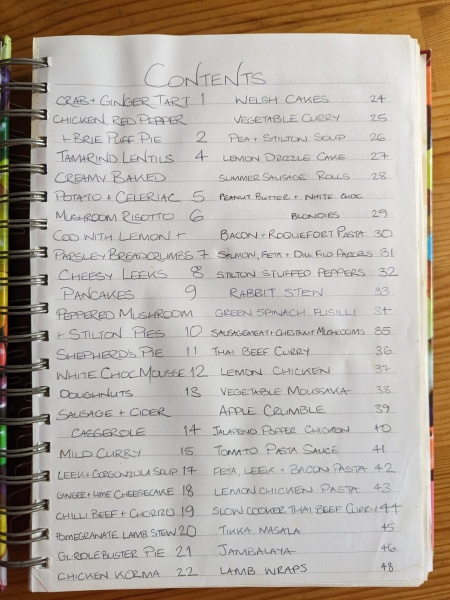 CONTENTS
CRAB + GINGER TART 1
CHICKEN, RED PEPPER
+ BRIE PUFF PIE 2
TAMARIND LENTILS 4
CREAMY BAKED
POTATO + CELERIAC 5
MUSHROOM RISOTTO 6
COD WITH LEMON +
PARSLEY BREADCRUMBS 7
CHEESY LEEKS 8
PANCAKES 9
PEPPERED MUSHROOM
+ STILTON PIES 10
SHEPHERD'S PIE 11
WHITE CHOC MOUSSE 12
DOUGHNUTS 13
SAUSAGE + CIDER
CASSEROLE 14
MILD CURRY 15
LEEK + GORGONZOLA SOUP 17
GINGER + LIME CHEESECAKE 18
CHILLI BEEF + CHORIZO 19
POMEGRANATE LAMB STEW 20
GIRDLEBUSTER PIE 21
CHICKEN KORMA 22
WELSH CAKES 24
VEGETABLE CURRY 25
PEA + STILTON SOUP 26
LEMON DRIZZLE CAKE 27
SUMMER SAUSAGE ROLLS 28
PEANUT BUTTER + WHITE CHOC
BLONDIES 29
BACON + ROQUEFORT PASTA 30
SALMON, FETA + DILL FILO PARCELS 31
STILTON STUFFED PEPPERS 32
RABBIT STEW 33
GREEN SPINACH FUSILLI 34
SAUSAGEMEAT + CHESTNUT MUSHROOMS 35
THAI BEEF CURRY 36
LEMON CHICKEN 37
VEGETABLE MOUSSAKA 38
APPLE CRUMBLE 39
JALAPENO POPPER CHICKEN 40
TOMATO PASTA SAUCE 41
FETA, LEEK + BACON PASTA 42
LEMON CHICKEN PASTA 43
SLOW COOKER THAI BEEF CURRY 44
TIKKA MASALA 45
JAMBALAYA 46
LAMB WRAPS 48